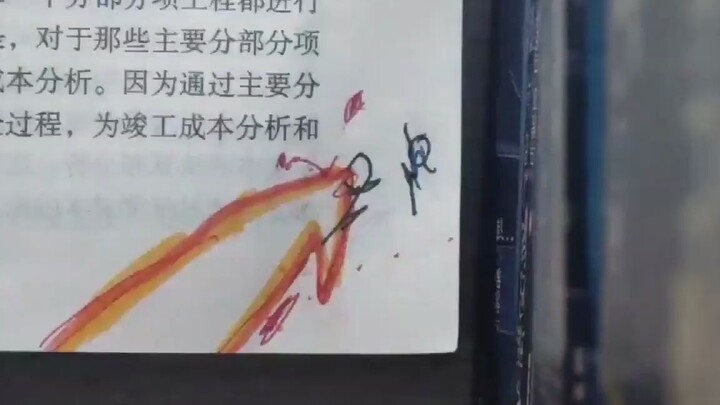 个分部分项工程都进行
，对于那些主要分部分项
成本分析。因为通过主要分
过程，为竣工成本分析和